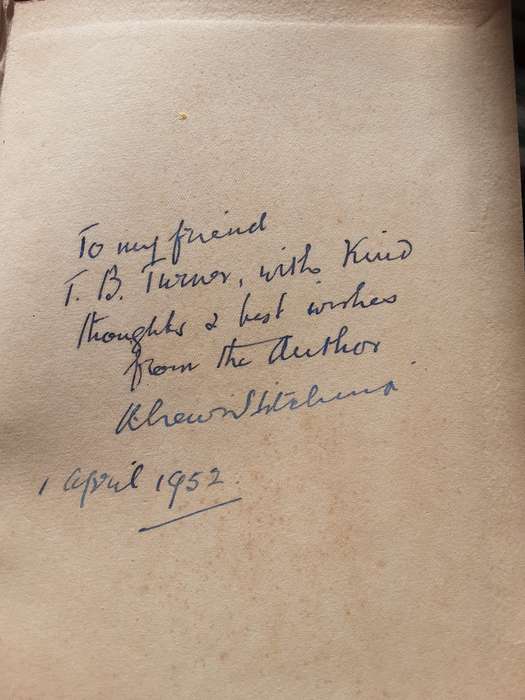 To my friend
T. B. Turner, with Kind
thoughts & best wishes
from the Author
1 April 1952